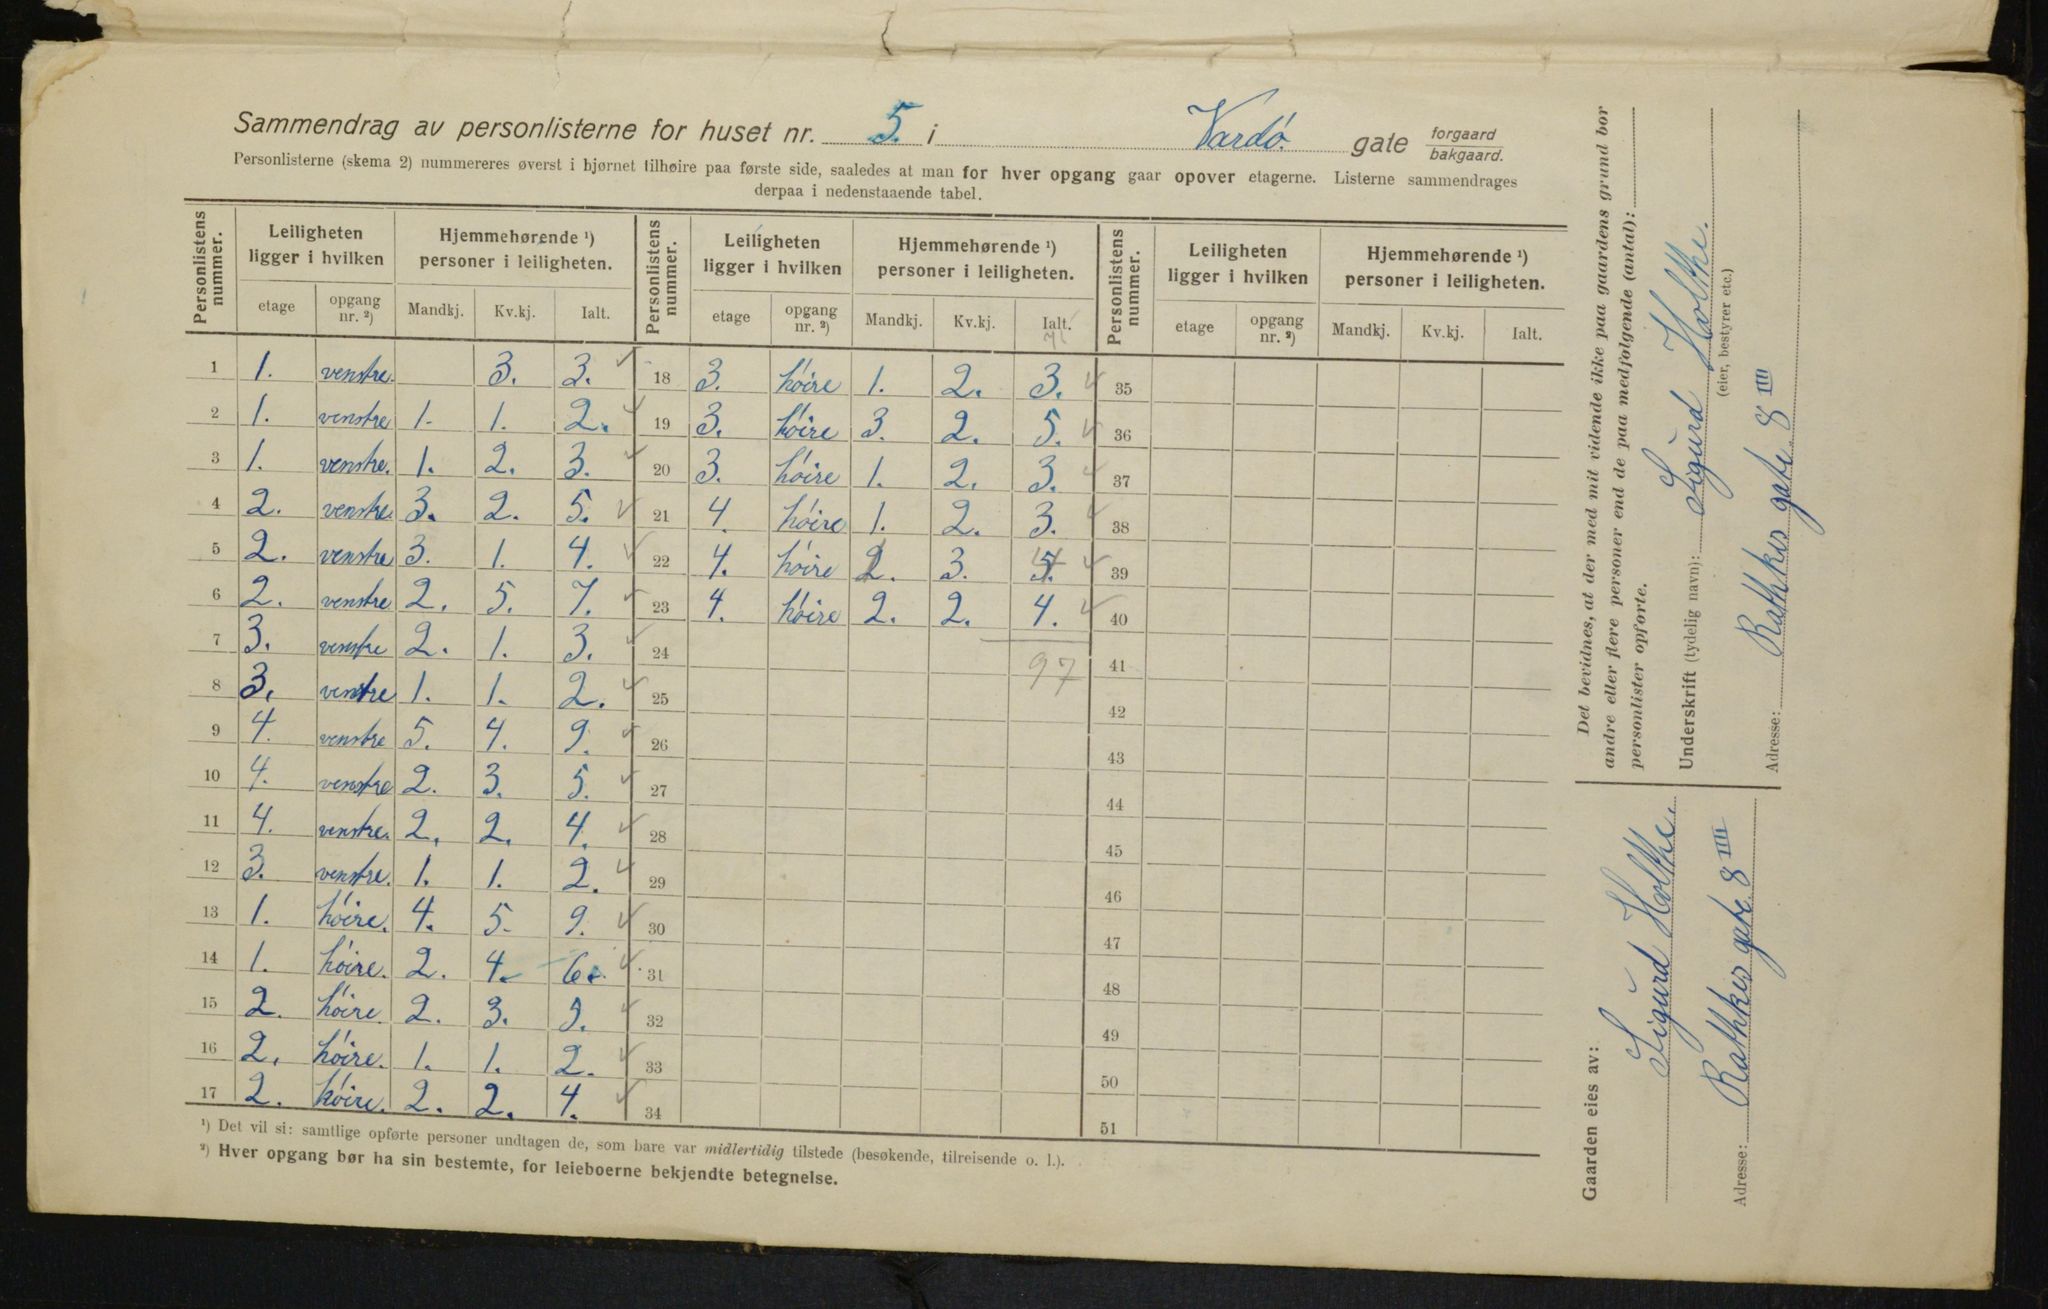 Sammendrag av personlisterne for huset nr. 5. i Vardø. gate forgaard / bakgaard.
Personlisterne (skema 2) nummereres øverst i hjørnet tilhøire paa første side, saaledes at man for hver opgang gaar opover etagerne. Listerne sammendrages
derpaa i nedenstaaende tabel.
Personlistens nummer. Leiligheten ligger i hvilken Hjemmehørende ¹) personer i leiligheten. Personlistens nummer. Leiligheten ligger i hvilken Hjemmehørende ¹) personer i leiligheten. Personlistens nummer. Leiligheten ligger i hvilken Hjemmehørende ¹) personer i leiligheten.
etage opgang nr. ²) Mandkj. Kv.kj. Ialt. etage opgang nr. ²) Mandkj. Kv.kj. Ialt. etage opgang nr. ²) Mandkj. Kv.kj. Ialt.
71
1 1. venstre. 3. 3. 18 3. høire 1. 2. 3. 35
2 1. venstre 1. 1. 2. 19 3. høire 3. 2. 5. 36
3 1. venstre. 1. 2. 3. 20 3. høire 1. 2. 3. 37
4 2. venstre. 3. 2. 5. 21 4. høire 1. 2. 3. 38
5 2. venstre 3. 1. 4. 22 4. høire 3. 39
6 2. venstre 2. 5. 7. 23 4. høire 2. 2. 4. 40
7 3. venstre 2. 1. 3. 24 97 41
8 3. venstre 1. 1. 2. 25 42
9 4. venstre 5. 4. 9. 26 43
10 4. venstre 2. 3. 5. 27 44
11 4. venstre. 2. 2. 4. 28 45
12 3. venstre. 1. 1. 2. 29 46
13 1. høire. 4. 5. 9. 30 47
14 1. høire. 2. 4. 6. 31 48
15 2. høire. 2. 3. 32 49
16 2. høire. 1. 1. 2. 33 50
17 2. høire. 2. 2. 4. 34 51
¹) Det vil si: samtlige opførte personer undtagen de, som bare var midlertidig tilstede (besøkende, tilreisende o. l.).
²) Hver opgang bør ha sin bestemte, for leieboerne bekjendte betegnelse.
Det bevidnes, at der med mit vidende ikke paa gaardens grund bor
andre eller flere personer end de paa medfølgende (antal):
personlister opførte.
Underskrift (tydelig navn): Sigurd Holthe.
(eier, bestyrer etc.)
Adresse: Rathkes gate 8 IIII
Gaarden eies av:
Sigurd Holthe.
Adresse: Rathkes gate 8 IIII